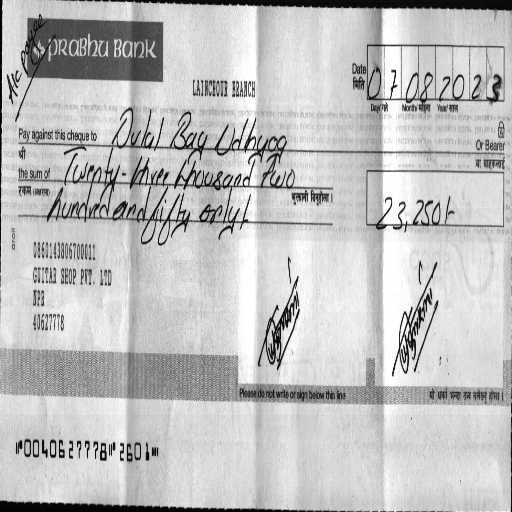 A/c payee
PRABHU BANK
LAINCHOUR BRANCH
Date
मिति
07082023
Day/गते Month/महिना Year/साल
Pay against this cheque to Dulal Bag Udhyog Or Bearer
श्री वा बाहकलाई
the sum of Twenty-three thousand Two
रकम (अक्षरमा) भुक्तानी दिनुहोला ।
hundred and fifty only/-
23,250/-
0860143806700011
GUITAR SHOP PVT. LTD
NPR
40627778
Please do not write or sign below this line
यो धर्का भन्दा तल नलेख्नु होला ।
"0040627778" 2601"